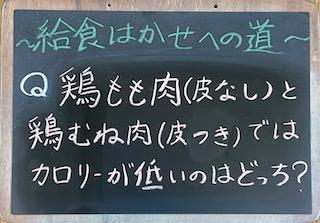 ～給食はかせへの道～
Q 鶏もも肉(皮なし)と
鶏むね肉(皮つき)では
カロリーが低いのはどっち?